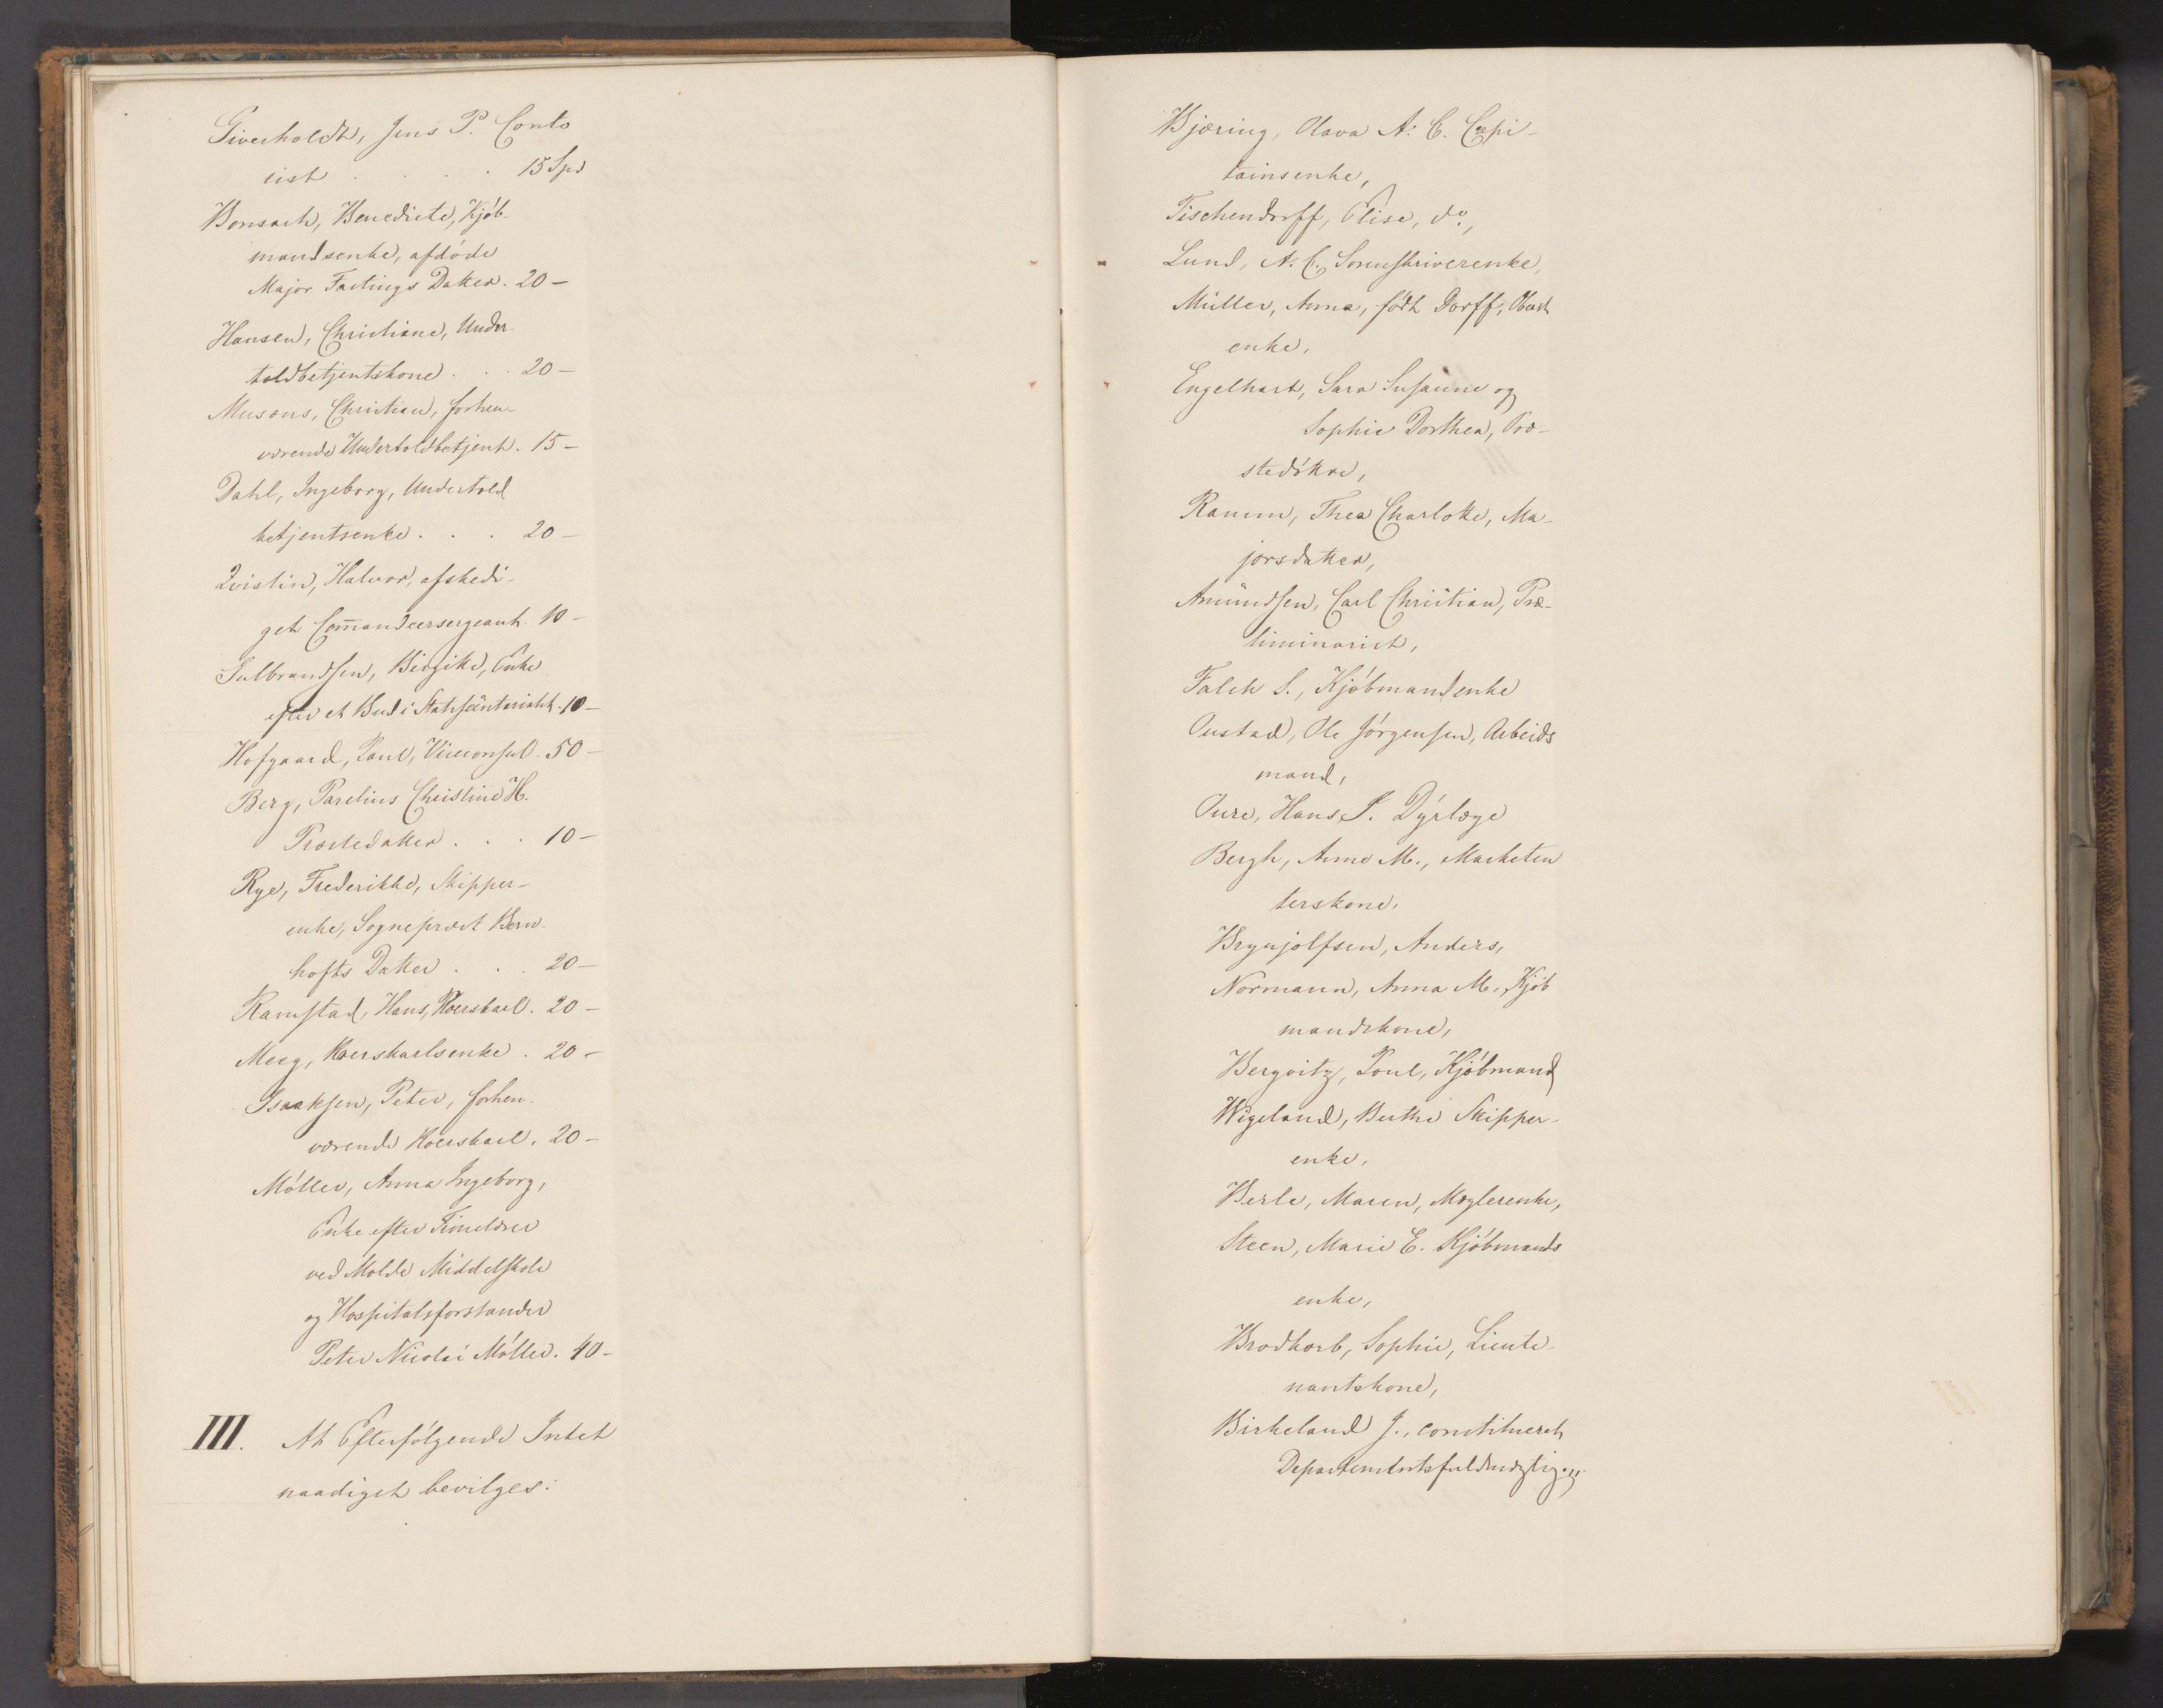 Giverholdt, Jens P. Conto
rist . . . . 15 Spd
Bonsach, Benedicte, Kjøb-
mandsenke, afdøde
Major Fastings Datter. 20 -
Hansen, Christiane, Under-
toldbetjentskone . . 20 -
Musæus, Christian, forhen-
værende Undertoldbetjent. 15 -
Dahl, Ingeborg, Undertold
betjentsenke . . . 20 -
Qvistin, Halvor, afskedi-
get Commandeersergeant. 10 -
Gulbrandsen, Birgitte, Enke
efter et Bud i Statssecretariatet. 10 -
Hofgaard, Poul, Viceconsul. 50 -
Berg, Parelius Christine H.
Præstedatter . . . 10 -
Rye, Frederikke, Skipper-
enke, Sognepræst Bern-
hofts Datter . . . 20 -
Ramstad, Hans, Roerskarl. 20 -
Meeg, Roerskarlsenke . 20 -
Isaaksen, Peter, forhen-
værende Roerskarl. 20 -
Møller, Anna Ingeborg,
Enke efter Timelærer
ved Molde Middelskole
og Hospitalsforstander
Peter Nicolai Møller. 40 -
III. At Efterfølgende Intet
naadigst bevilges:
Bjering, Olava A. C. Capi-
tainsenke,
Tischendorff, Elise, do,
Lund, A. C. Sorenskriverenke,
Müller, Anna, født Dorff, Oberst
enke,
Engelhart, Sara Susanne og
Sophie Dorthea, Præ-
stedøttre,
Ramm, Thea Charlotte, Ma-
jorsdatter,
Amundsen, Carl Christian, Præ-
liminarist,
Falch S., Kjøbmandenke
Oustad, Ole Jørgensen, Arbeids
mand,
Oure, Hans P. Dyrlæge
Bergh, Anne M., Marketen
terskone,
Brynjolfsen, Anders,
Normann, Anna M., Kjøb
mandskone,
Bergvitz, Poul, Kjøbmand
Wigeland, Berthe Skipper-
enke,
Berle, Maren, Mæglerenke,
Steen, Marie E. Kjøbmands
enke,
Brodkorb, Sophie, Lieute-
nantskone,
Birkeland J., constitueret
Departementsfuldmægtig.